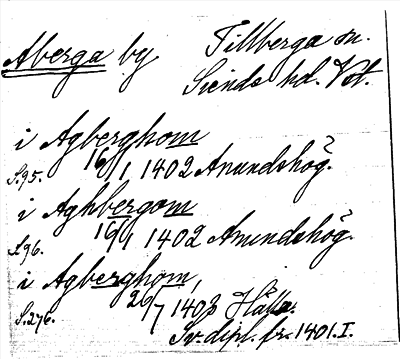 Aberga by Tillberga sn.
Siends hd. Vst.
i Agberghom
S.95. 16/1 1402 Anundshög.
i Aghbergom
S.96. 16/1 1402 Anundshög.
i Agberghom,
S.276. 20/7 1403 Hälla.
Sv. dipl. fr. 1401. I.